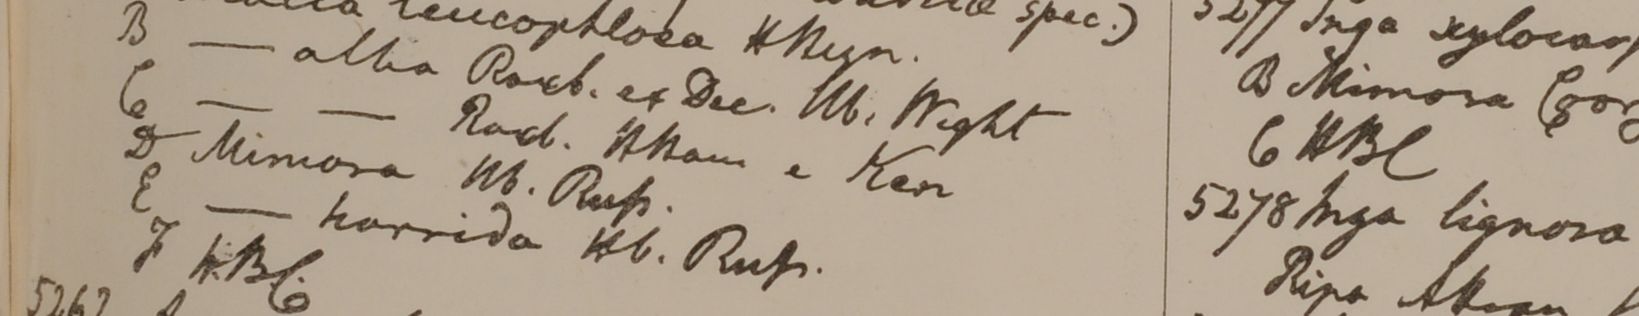 leucophloea HHeyn. spec.)
B — alba Roxb. ex Dec. Hb. Wight
C — — Roxb. HHam e
D Mimosa Hb. Russ.
E — horrida Hb. Russ.
F HBC.
5277 Inga xylocarp
B Mimosa
C HBC
5278 Inga lignosa
Ripa